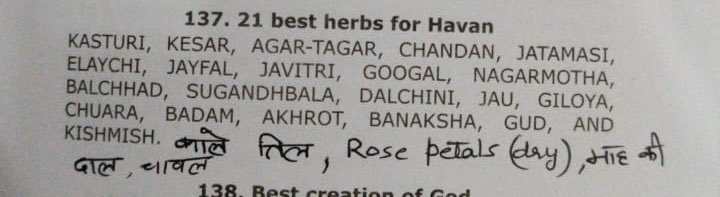 137. 21 best herbs for Havan
KASTURI, KESAR, AGAR-TAGAR, CHANDAN, JATAMASI,
ELAYCHI, JAYFAL, JAVITRI, GOOGAL, NAGARMOTHA,
BALCHHAD, SUGANDHBALA, DALCHINI, JAU, GILOYA,
CHUARA, BADAM, AKHROT, BANAKSHA, GUD, AND
KISHMISH. काले तिल, Rose petals (dry), माँह की
दाल, चावल
138. Best creation of God